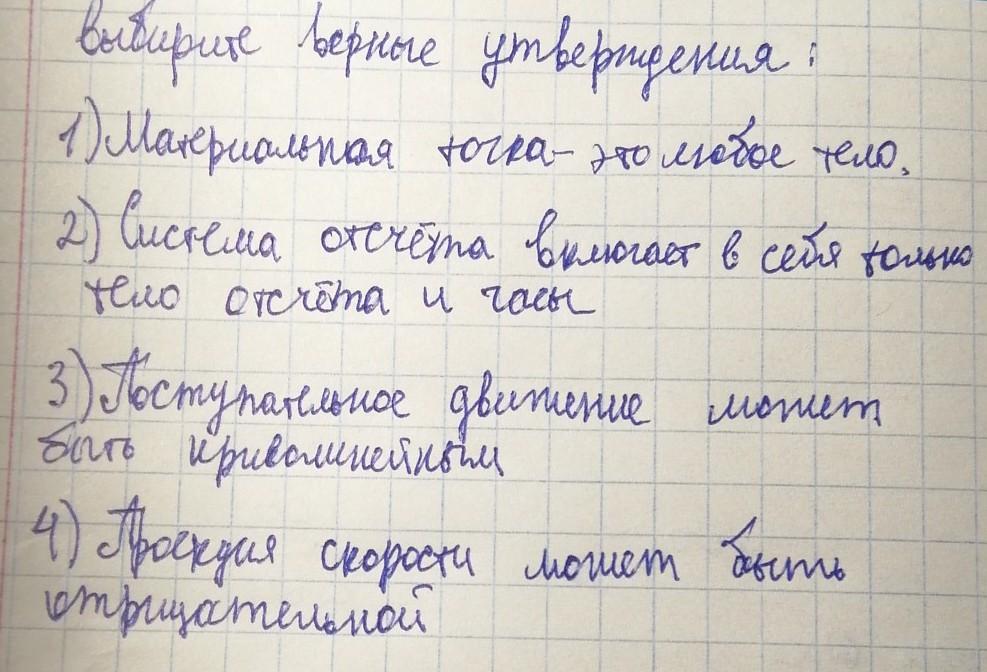 выбирите верные утверждения:
1) Материальная точка - это любое тело.
2) Система отсчёта включает в себя только
тело отсчёта и часы
3) Поступательное движение может
быть криволинейным
4) Проекция скорости может быть
отрицательной